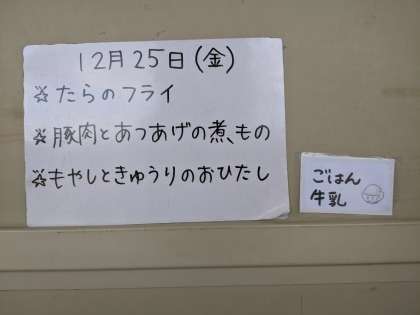 12月25日(金)
☆たらのフライ
☆豚肉とあつあげの煮もの
☆もやしときゅうりのおひたし
ごはん
牛乳